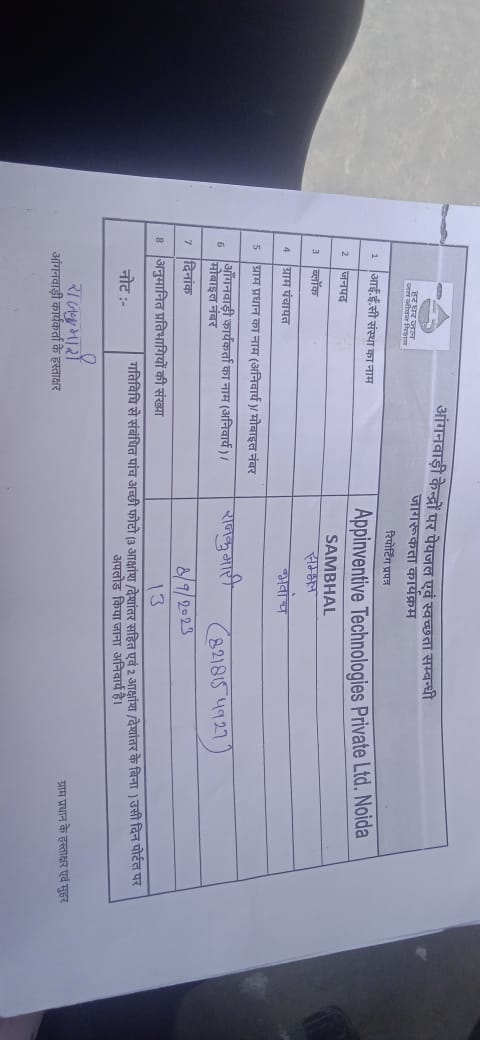 हर घर जल
जल जीवन मिशन
आंगनवाड़ी केन्द्रों पर पेयजल एवं स्वच्छता सम्बन्धी
जागरूकता कार्यक्रम
रिपोर्टिंग प्रपत्र
1 आई.ई.सी संस्था का नाम Appinventive Technologies Private Ltd. Noida
2 जनपद SAMBHAL
3 ब्लॉक सम्भल
4 ग्राम पंचायत
5 ग्राम प्रधान का नाम (अनिवार्य )/ मोबाइल नंबर
6 आँगनवाड़ी कार्यकर्ता का नाम (अनिवार्य ) / राजकुमारी
मोबाइल नंबर
7 दिनांक 8/9/2023
8 अनुमानित प्रतिभागियों की संख्या 13
नोट :- गतिविधि से संबंधित पांच अच्छी फोटो (3 आक्षांश /देशांतर सहित एवं 2 आक्षांश /देशांतर के बिना ) उसी दिन पोर्टल पर
अपलोड किया जाना अनिवार्य है।
राजकुमारी
आंगनवाड़ी कार्यकर्ता के हस्ताक्षर
ग्राम प्रधान के हस्ताक्षर एवं मुहर